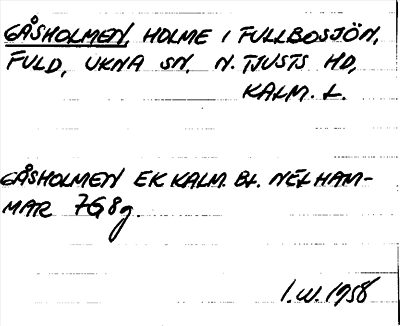 GÅSHOLMEN, HOLME I FULLBOSJÖN,
FULD, UKNA SN, N. TJUSTS HD,
KALM. L.
GÅSHOLMEN EK KALM. BL. NELHAM-
MAR 7G8g.
I.W. 1958